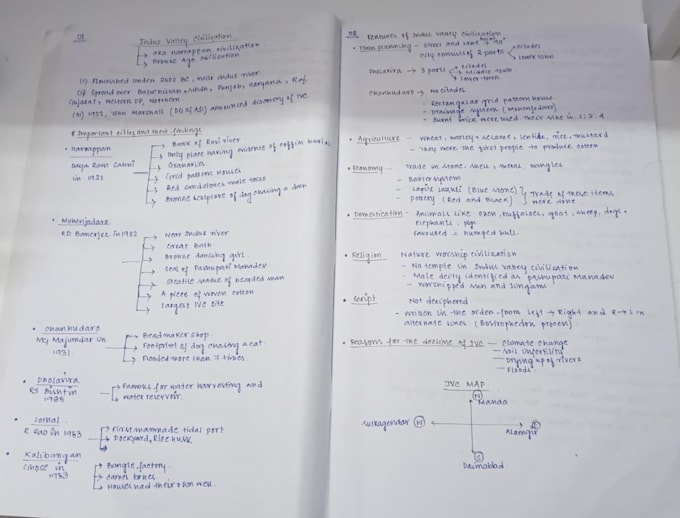 01
Indus Valley Civilization
aka Harrappan civilization
Bronze Age civilization
(i) Flourished under 2600 BC, near Indus river
(ii) Spread over Baluchistan, Sindh, Punjab, Haryana, Raj,
Gujarat, Western UP, Northern
(iii) 1922, John Marshall (DG of ASI) announced discovery of IVC
Important cities and their findings
Harrappan
Daya Ram Sahni
in 1921
Bank of Ravi river
Only place having evidence of coffin burial
Granaries
Grid pattern houses
Red sandstones male torso
Bronze sculpture of dog chasing a
Mohenjadaro
RD Banerjee in 1922
Near Indus river
Great Bath
Bronze dancing girl
Seal of Pashupati Mahadev
Steatite statue of bearded man
A piece of woven cotton
Largest IVC site
Chanhudaro
MG Majumdar in
1931
Bead maker shop
Footprint of dog chasing a cat
Flooded more than times
Dholavira
RS Bisht in
1985
Famous for water harvesting and
water reservoir
Lothal
R Rao in 1953
First manmade tidal port
Dockyard, Rice husk
Kalibangan
Ghose in
1953
Bangle factory
Camel bones
Houses had their own well
02
Features of Indus Valley Civilization
Town planning - Streets and lane → 90°
City consists of 2 parts
citadel
lower town
Dholavira → 3 parts
citadel
Middle town
Lower town
Chanhudaro → No citadel
- Rectangular grid pattern house
- Drainage system (Mohenjodaro)
- Burnt brick were used their size in 1:2:4
Agriculture - Wheat, barley, sesame, lentils, rice, mustard
- They were the first people to produce cotton
Economy - Trade in stone, shell, metal, bangles
- Barter system
- Lapis lazuli (Blue stone)
- pottery (Red and Black)
Trade of these items
were done
Domestication - Animals like oxen, buffaloes, goat, sheep, dogs,
elephants, pigs
favoured - humped bull.
Religion Nature worship civilization
- No temple in Indus valley civilization
- Male deity identified as pashupati Mahadev
- worshipped sun and lingams
Script Not deciphered
- written in the order from left → Right and R → L in
alternate lines (Boustrophedon process)
Reasons for the decline of IVC - Climate change
- Soil infertility
- Drying up of rivers
- Floods
IVC MAP
N
Manda
Sutkagendor
Alamgir
Daimabad